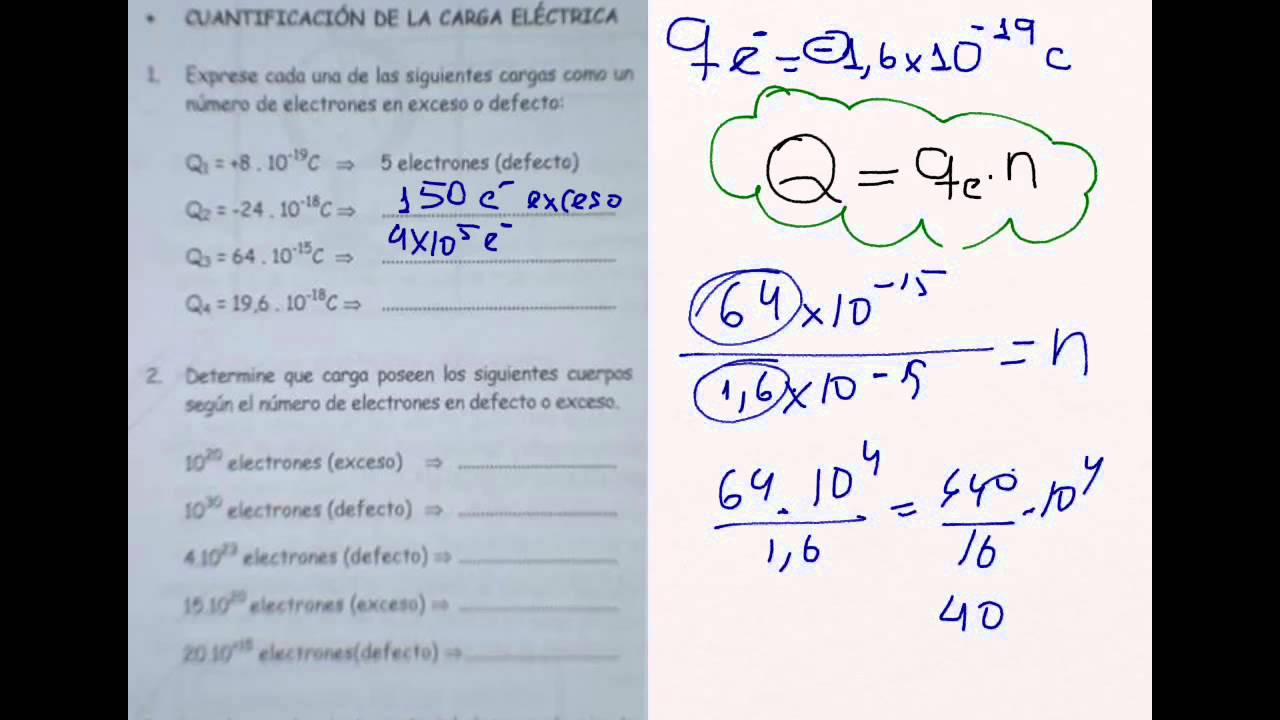 • CUANTIFICACIÓN DE LA CARGA ELÉCTRICA
1. Exprese cada una de las siguientes cargas como un
número de electrones en exceso o defecto:
Q₁ = +8 . 10⁻¹⁹C ⇒ 5 electrones (defecto)
Q₂ = -24 . 10⁻¹⁸C ⇒ 150 e⁻ exceso
Q₃ = 64 . 10⁻¹⁵C ⇒ 4x10⁵ e⁻
Q₄ = 19,6 . 10⁻¹⁸C ⇒ ..............................
2. Determine que carga poseen los siguientes cuerpos
según el número de electrones en defecto o exceso.
10²⁰ electrones (exceso) ⇒ ....................
10³⁰ electrones (defecto) ⇒ ....................
4.10²³ electrones (defecto) ⇒ ....................
15.10²⁰ electrones (exceso) ⇒ ....................
electrones(defecto) ⇒ ....................
q e⁻ = -1,6 x 10⁻¹⁹ c
Q = qe . n
64 x 10⁻¹⁵
= n
1,6 x 10⁻¹⁹
64 . 10⁴ = 640 . 10⁴
1,6 16
40